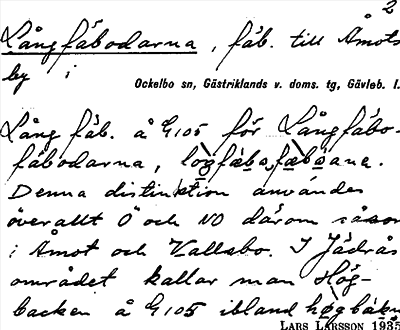 2
Långfäbodarna, fäb. till Åmots
by i
Ockelbo sn, Gästriklands v. doms. tg, Gävleb. l.
Lång fäb. å G105 för Långfäbo-
fäbodarna,
Denna distinktion användes
överallt Ö och NO därom såsom
i Åmot och Vallsbo. I Jädrås
området kallar man Hög-
backen å G105 ibland
LARS LARSSON 1935